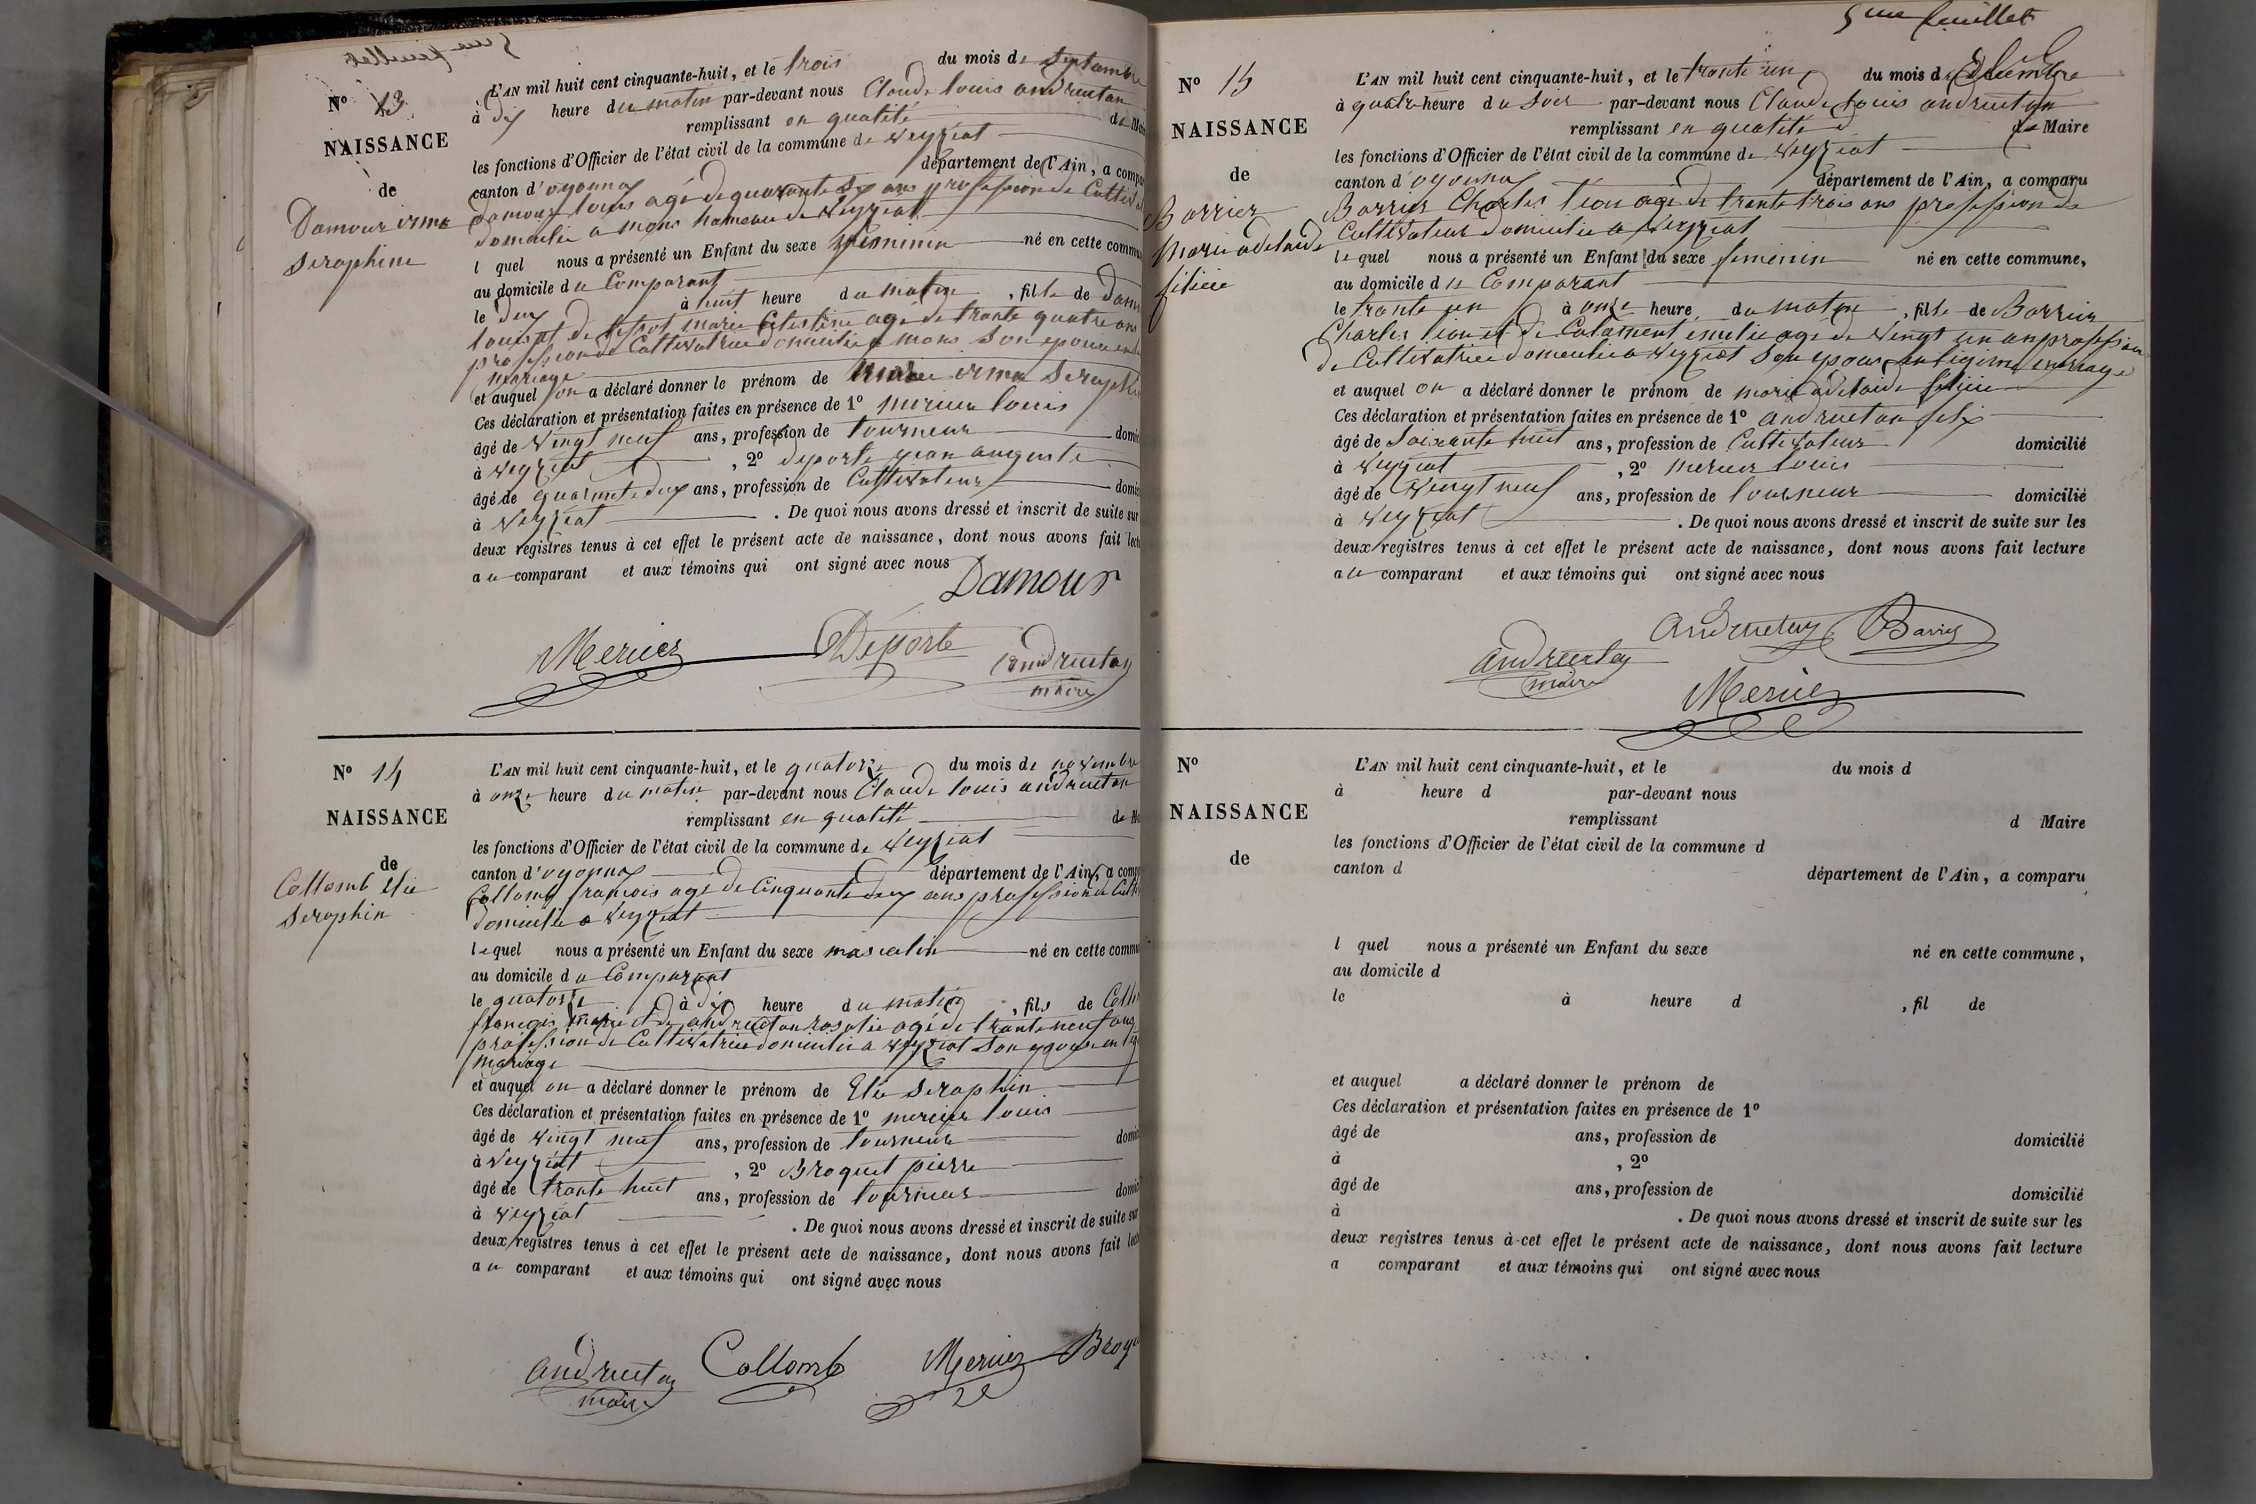 N° 13
NAISSANCE
de
Damour irma
Seraphine
L'AN mil huit cent cinquante-huit, et le trois du mois de septembre
à dix heure du matin par-devant nous Claude louis andruetan
remplissant en quatité de
les fonctions d'Officier de l'état civil de la commune de veyziat
canton d'oyonnax département de l'Ain, a
damour louis agé de quarante six ans profession de
domicilie a mons hameau de veyziat
l quel nous a présenté un Enfant du sexe feminin né en cette
au domicile du Comparant
le deux à huit heure du matin, fille de
louis et de marie Celestine agé de trante quatre ans
profession de Cultivatrice domicilie a mons son epouse
mariage
et auquel on a déclaré donner le prénom de irma
Ces déclaration et présentation faites en présence de 1° mercier louis
âgé de vingt neuf ans, profession de tourneur
à veyziat, 2° deporte jean auguste
âgé de quarante deux ans, profession de Cultivateur
à veyziat. De quoi nous avons dressé et inscrit de suite sur
deux registres tenus à cet effet le présent acte de naissance, dont nous avons fait
au comparant et aux témoins qui ont signé avec nous
Damour
Mercier Déporte andruetan
maire
N° 14
NAISSANCE
de
Collomb elie
Seraphin
L'AN mil huit cent cinquante-huit, et le quatorze du mois de novembre
à onze heure du matin par-devant nous Claude louis andruetan
remplissant en quatité de
les fonctions d'Officier de l'état civil de la commune de veyziat
canton d'oyonnax département de l'Ain, a
Collomb francois agé de Cinquante deux ans profession de
domicilie a veyziat
lequel nous a présenté un Enfant du sexe masculin né en cette
au domicile du Comparant
le quatorze à dix heure du matin, fils de
francois marie et de andruetan rosalie agé de trante neuf ans
profession de Cultivatrice domicilie a veyziat son epouse en
mariage
et auquel on a déclaré donner le prénom de Elie Seraphin
Ces déclaration et présentation faites en présence de 1° mercier louis
âgé de vingt neuf ans, profession de tourneur
à veyziat, 2° Broquet pierre
âgé de trante huit ans, profession de tourneur
à veyziat. De quoi nous avons dressé et inscrit de suite sur
deux registres tenus à cet effet le présent acte de naissance, dont nous avons fait
au comparant et aux témoins qui ont signé avec nous
andruetan Collomb Mercier
maire
5me feuillet
N° 15
NAISSANCE
de
Barrier
marie adelaide
felicie
L'AN mil huit cent cinquante-huit, et le trante un du mois de Décembre
à quatre heure du soir par-devant nous Claude Louis andruetan
remplissant en quatité de Maire
les fonctions d'Officier de l'état civil de la commune de veyziat
canton d'oyonnax département de l'Ain, a comparu
Barrier Charles léon agé de trante trois ans profession de
Cultivateur domicilie a veyziat
lequel nous a présenté un Enfant du sexe feminin né en cette commune,
au domicile du Comparant
le trante un à onze heure du matin, fille de Barrier
Charles léon et de emelie agé de vingt un an profession
de Cultivatrice domicilie a veyziat son epouse en legime mariage
et auquel on a déclaré donner le prénom de marie adelaide felicie
Ces déclaration et présentation faites en présence de 1° andruetan felix
âgé de soixante huit ans, profession de Cultivateur domicilié
à veyziat, 2° mercier louis
âgé de vingt neuf ans, profession de tourneur domicilié
à veyziat. De quoi nous avons dressé et inscrit de suite sur les
deux registres tenus à cet effet le présent acte de naissance, dont nous avons fait lecture
au comparant et aux témoins qui ont signé avec nous
andruetan Barrier
andruetan
maire
Mercier
N°
NAISSANCE
de
L'AN mil huit cent cinquante-huit, et le du mois d
à heure d par-devant nous
remplissant d Maire
les fonctions d'Officier de l'état civil de la commune d
canton d département de l'Ain, a comparu
l quel nous a présenté un Enfant du sexe né en cette commune,
au domicile d
le à heure d, fil de
et auquel a déclaré donner le prénom de
Ces déclaration et présentation faites en présence de 1°
âgé de ans, profession de domicilié
à, 2°
âgé de ans, profession de domicilié
à. De quoi nous avons dressé et inscrit de suite sur les
deux registres tenus à cet effet le présent acte de naissance, dont nous avons fait lecture
a comparant et aux témoins qui ont signé avec nous